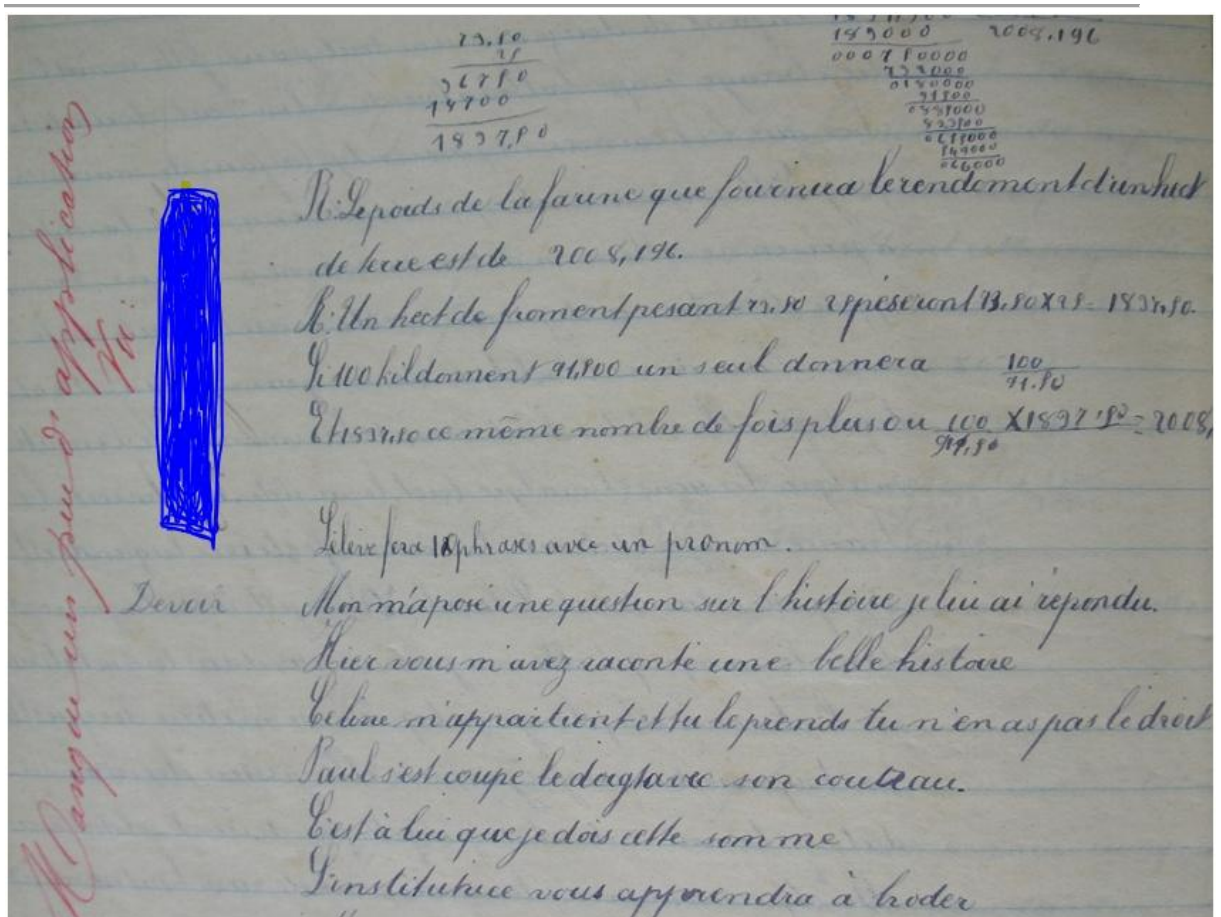 73,80
25
36780
18700
1837,80
189000 2008,196
000780000
738000
0180000
91800
0889000
823800
066000
R: Le poids de la farine que fournira le rendement d'un hect
de terre est de 2008,196.
R: Un hect de froment pesant 73,80 25 pèseront 73,80 X 25 = 1837,80.
Si 100 kil donnent 91,800 un seul donnera 100
91.80
Et 1837,80 ce même nombre de fois plus ou 100 X 1837,80 = 2008,
91,80
L'élève fera 12 phrases avec un pronom.
Devoir M on m'a posé une question sur l'histoire je lui ai répondu.
Hier vous m'avez raconté une belle histoire
Ce livre m'appartient et tu le prends tu n'en as pas le droit
Paul s'est coupé le doigt avec son couteau.
C'est à lui que je dois cette somme
L'institutrice vous apprendra à broder
Manque un peu d'application
Vu: